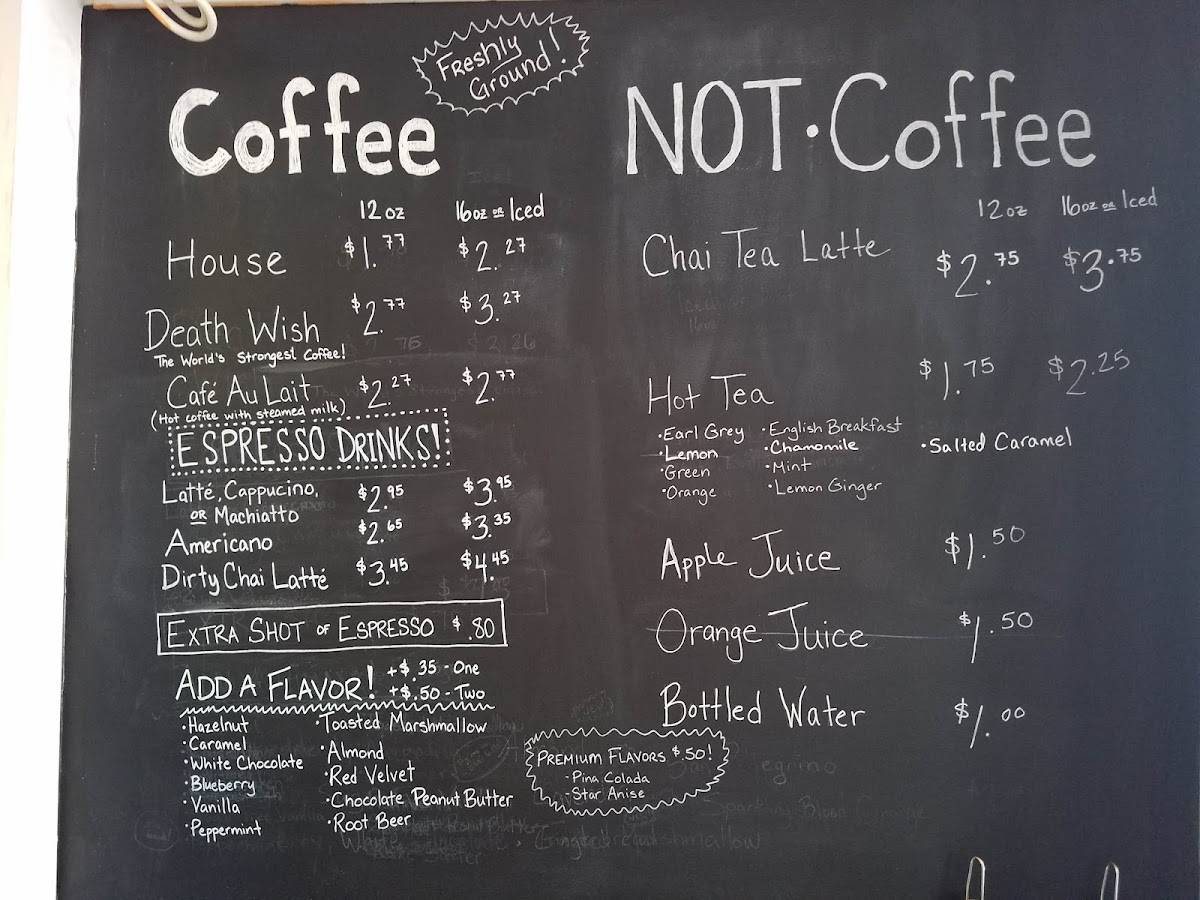 Freshly
Ground!
Coffee
12 oz 16oz or Iced
House $1.77 $2.27
Death Wish $2.77 $3.27
The World's Strongest Coffee!
Café Au Lait $2.27 $2.77
(Hot coffee with steamed milk)
ESPRESSO DRINKS!
Latté, Cappucino, $2.95 $3.95
or Machiatto
Americano $2.65 $3.35
Dirty Chai Latté $3.45 $4.45
EXTRA SHOT OF ESPRESSO $.80
ADD A FLAVOR! +$.35 - One
+$.50 - Two
·Hazelnut ·Toasted Marshmallow
·Caramel ·Almond
·White Chocolate ·Red Velvet
·Blueberry ·Chocolate Peanut Butter
·Vanilla ·Root Beer
·Peppermint
PREMIUM FLAVORS $.50!
-Pina Colada
-Star Anise
NOT·Coffee
12oz 16oz or Iced
Chai Tea Latte $2.75 $3.75
Hot Tea $1.75 $2.25
·Earl Grey ·English Breakfast
·Lemon ·Chamomile ·Salted Caramel
·Green ·Mint
·Orange ·Lemon Ginger
Apple Juice $1.50
Orange Juice $1.50
Bottled Water $1.00